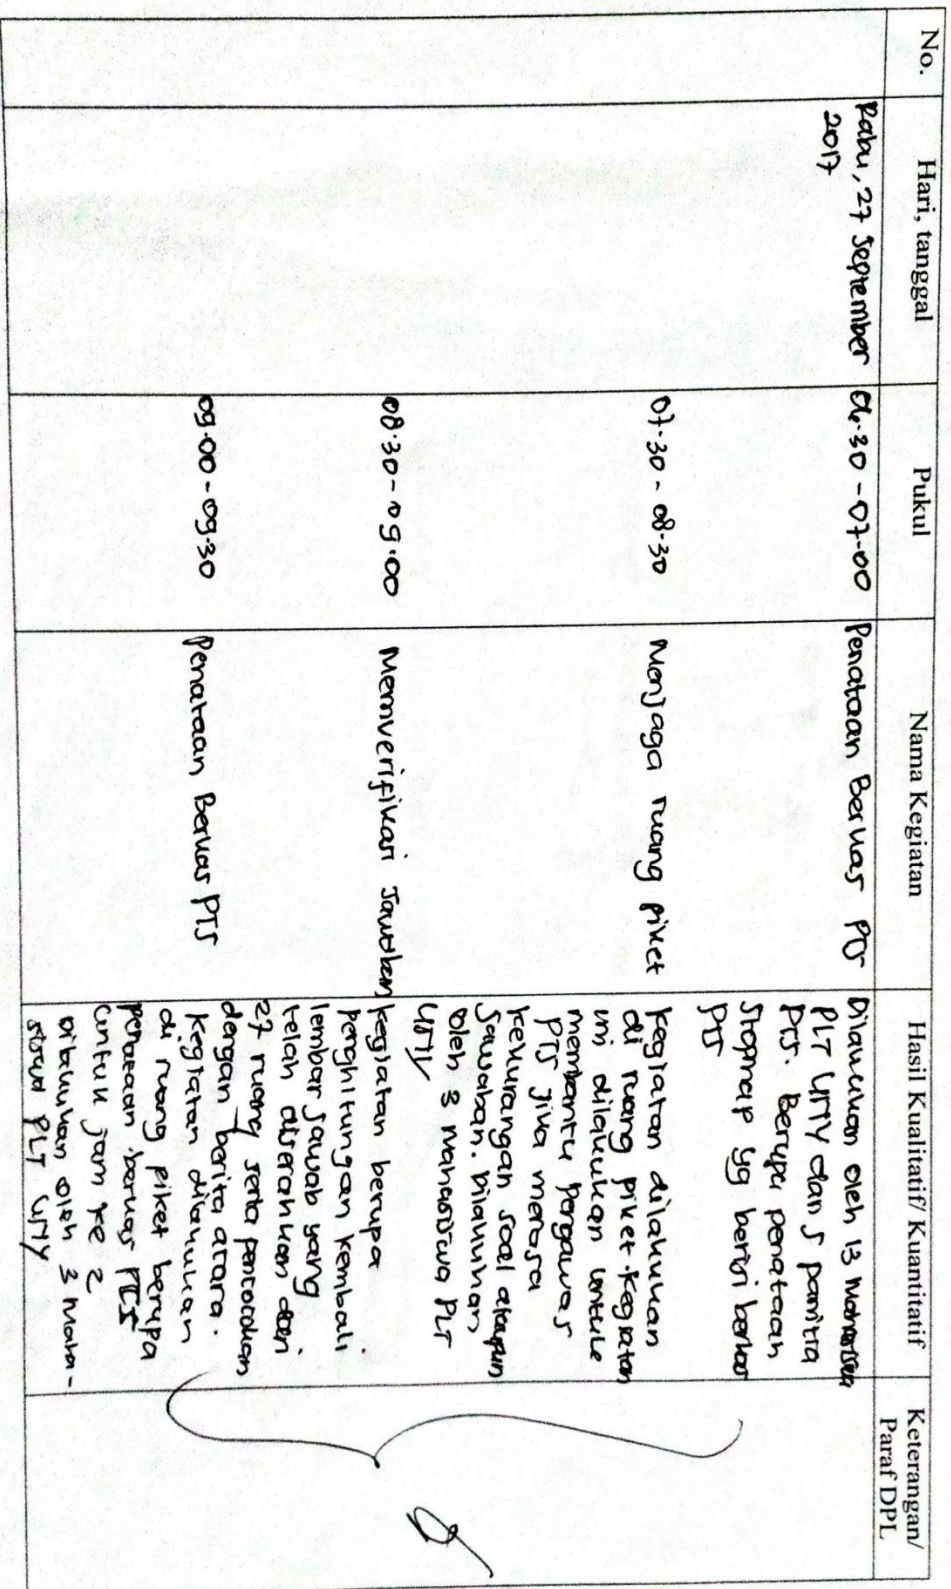 No.
Hari, tanggal
Pukul
Nama Kegiatan
Hasil Kualitatif/ Kuantitatif
Keterangan/
Paraf DPL
Rabu, 27 September
2017
06.30 - 07.00
Penataan Berkas PTS
Dilakukan oleh 13 mahasiswa
PLT UNY dan 5 panitia
PTS. Berupa penataan
Stopmap yg berisi berkas
PTS
07.30 - 08.30
Menjaga ruang piket
Kegiatan dilakukan
di ruang piket. Kegiatan
ini dilakukan untuk
membantu pengawas
PTS jika merasa
kekurangan soal ataupun
Jawaban. Dilakukan
oleh 3 mahasiswa PLT
UNY
08.30 - 09.00
Memverifikasi Jawaban
Kegiatan berupa
penghitungan kembali
lembar jawab yang
telah diserahkan dari
27 ruang serta pencocokan
dengan berita acara.
09.00 - 09.30
Penataan Berkas PTS
Kegiatan dilakukan
di ruang piket berupa
penataan berkas PTS
untuk jam ke 2
Dilakukan oleh 3 maha-
siswa PLT UNY